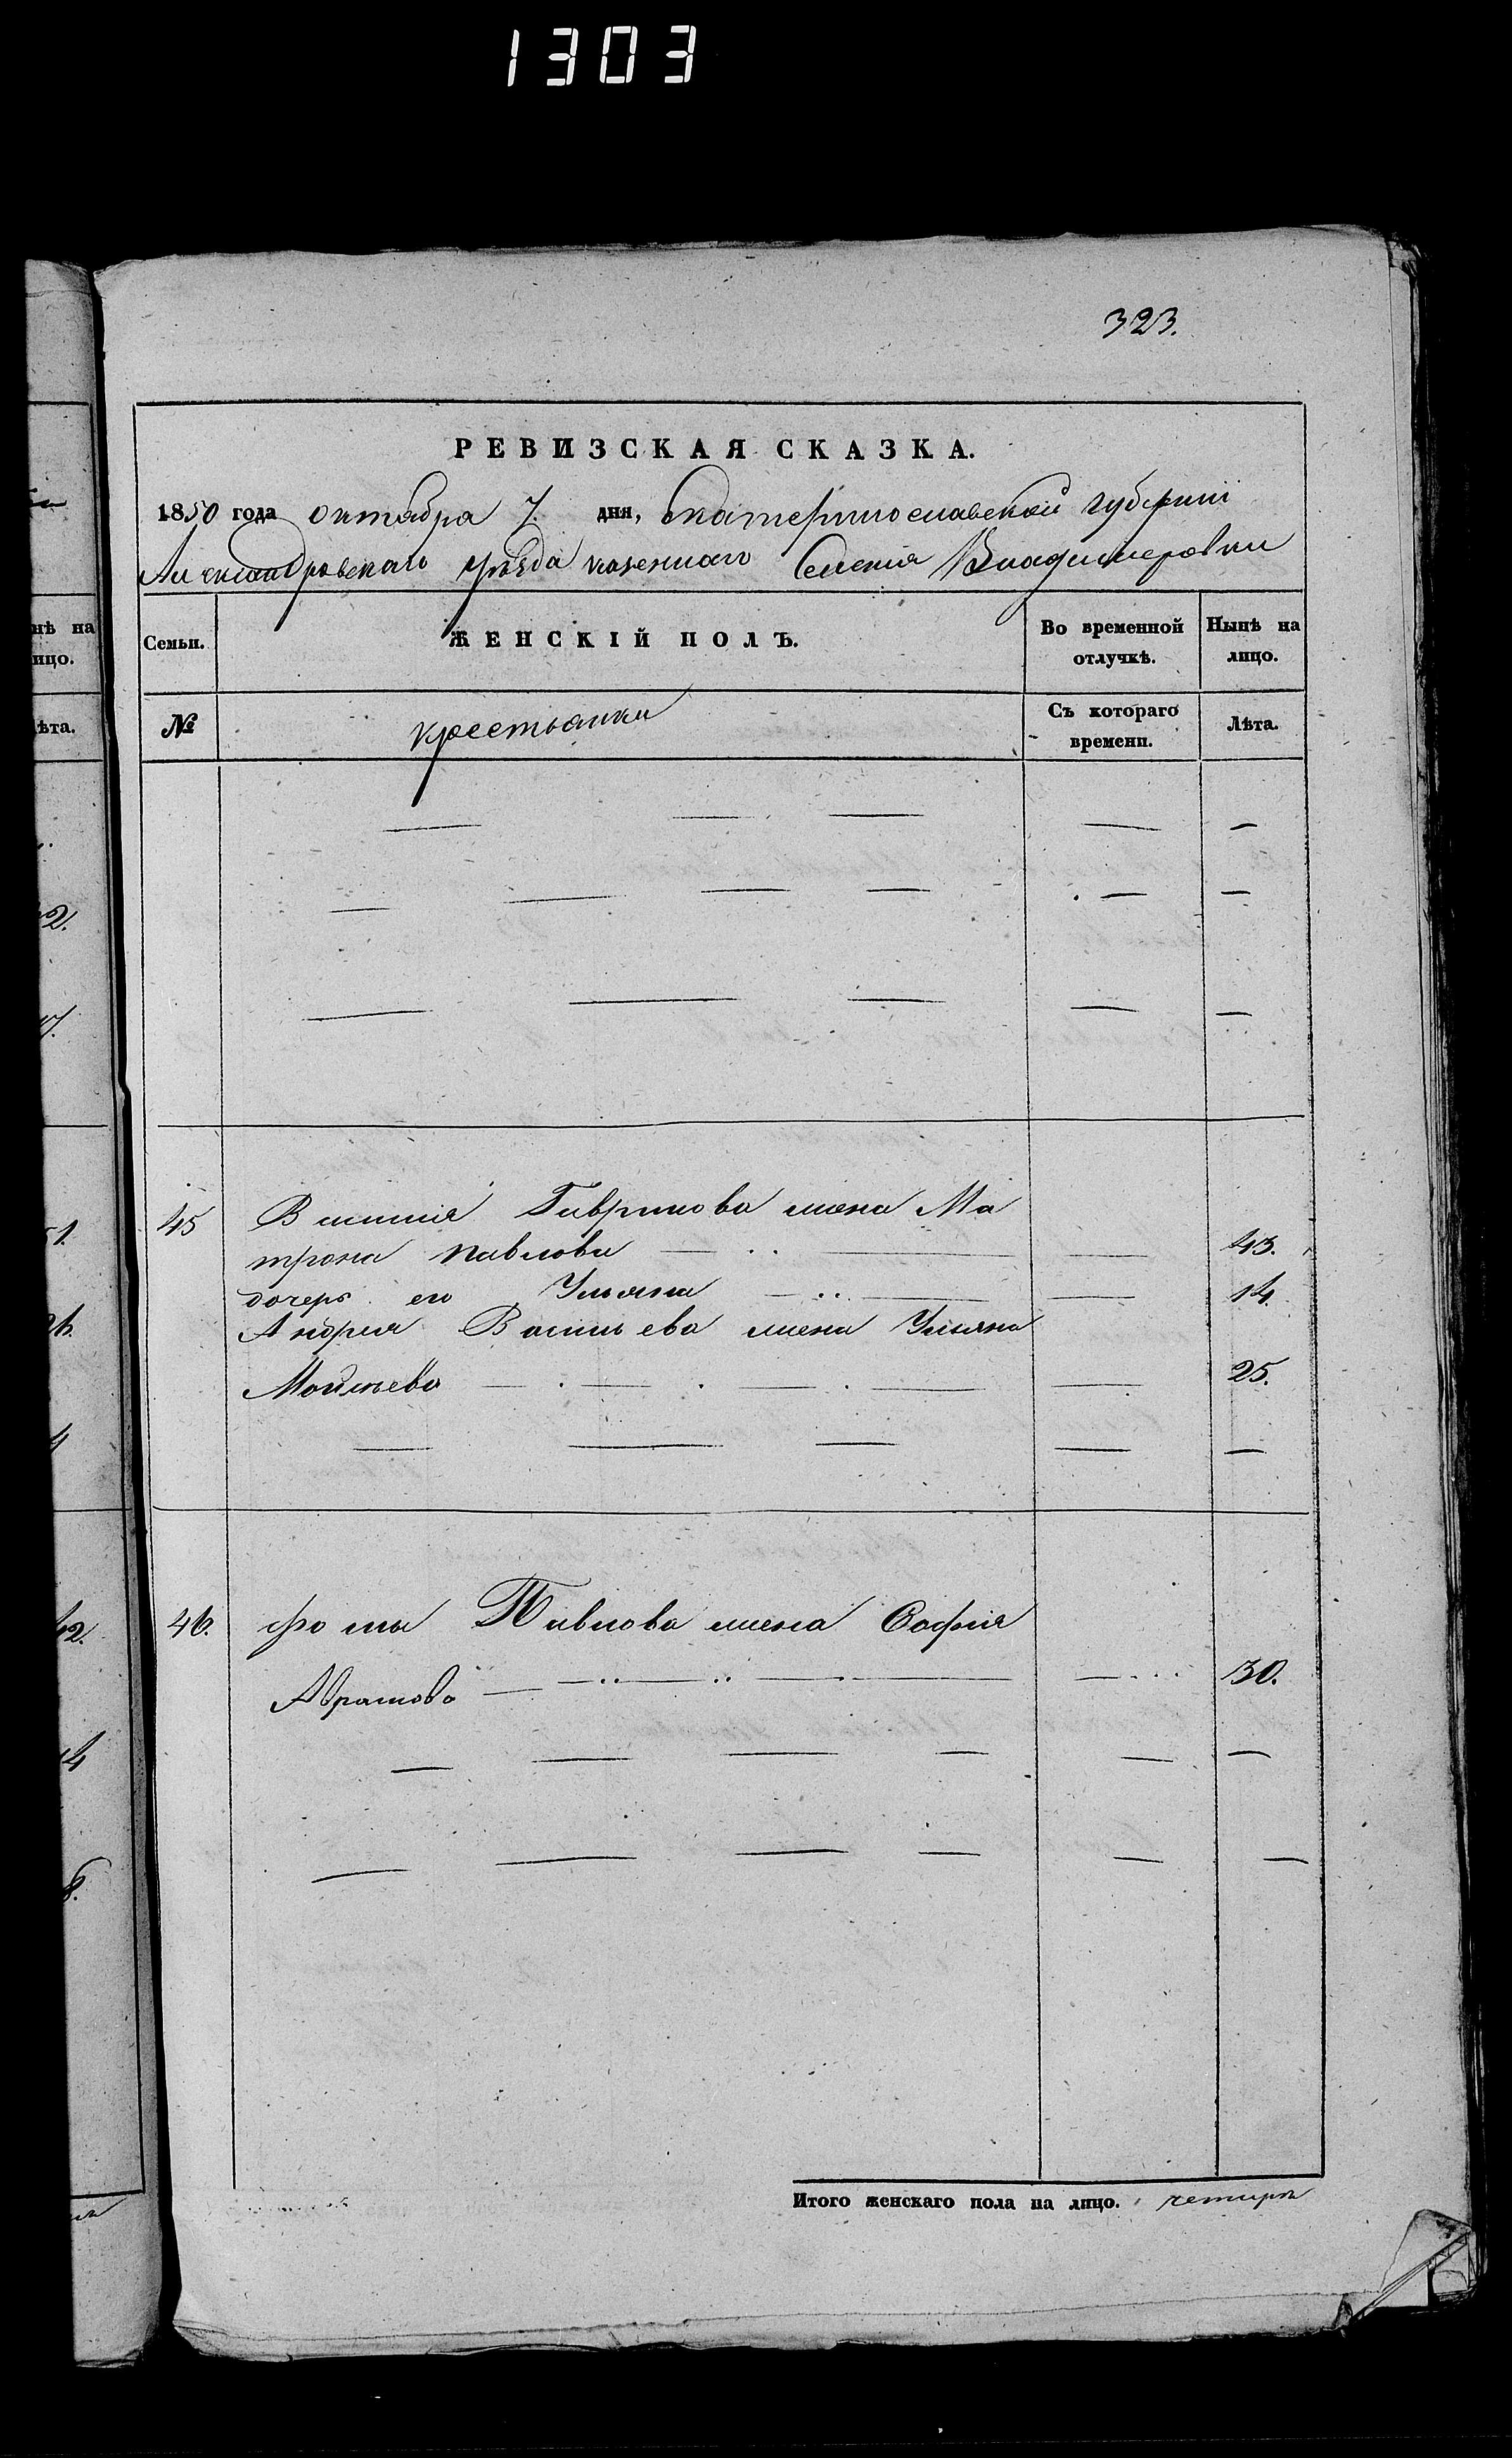 1303
323.
РЕВИЗСКАЯ СКАЗКА.
1850 года октября 7. дня, Екатеринославской губерніи
Александровскаго уѣзда казеннаго Селенія Владимеровки
нѣ на
ицо.
Семьи.
ЖЕНСКІЙ ПОЛЪ.
Во временной отлучкѣ.
Нынѣ на лицо.
ѣта.
№
крестьянки
Съ котораго времени.
Лѣта.
45 Василія Гаврилова жена Ма
трона Павлова — 43.
дочерь его Ульяна — 14.
Андрея Васильева жена Ульяна
Мойсѣева — 25.
46. Фомы Павлова жена Софія
Абрамова — 30.
Итого женскаго пола на лицо. четыре